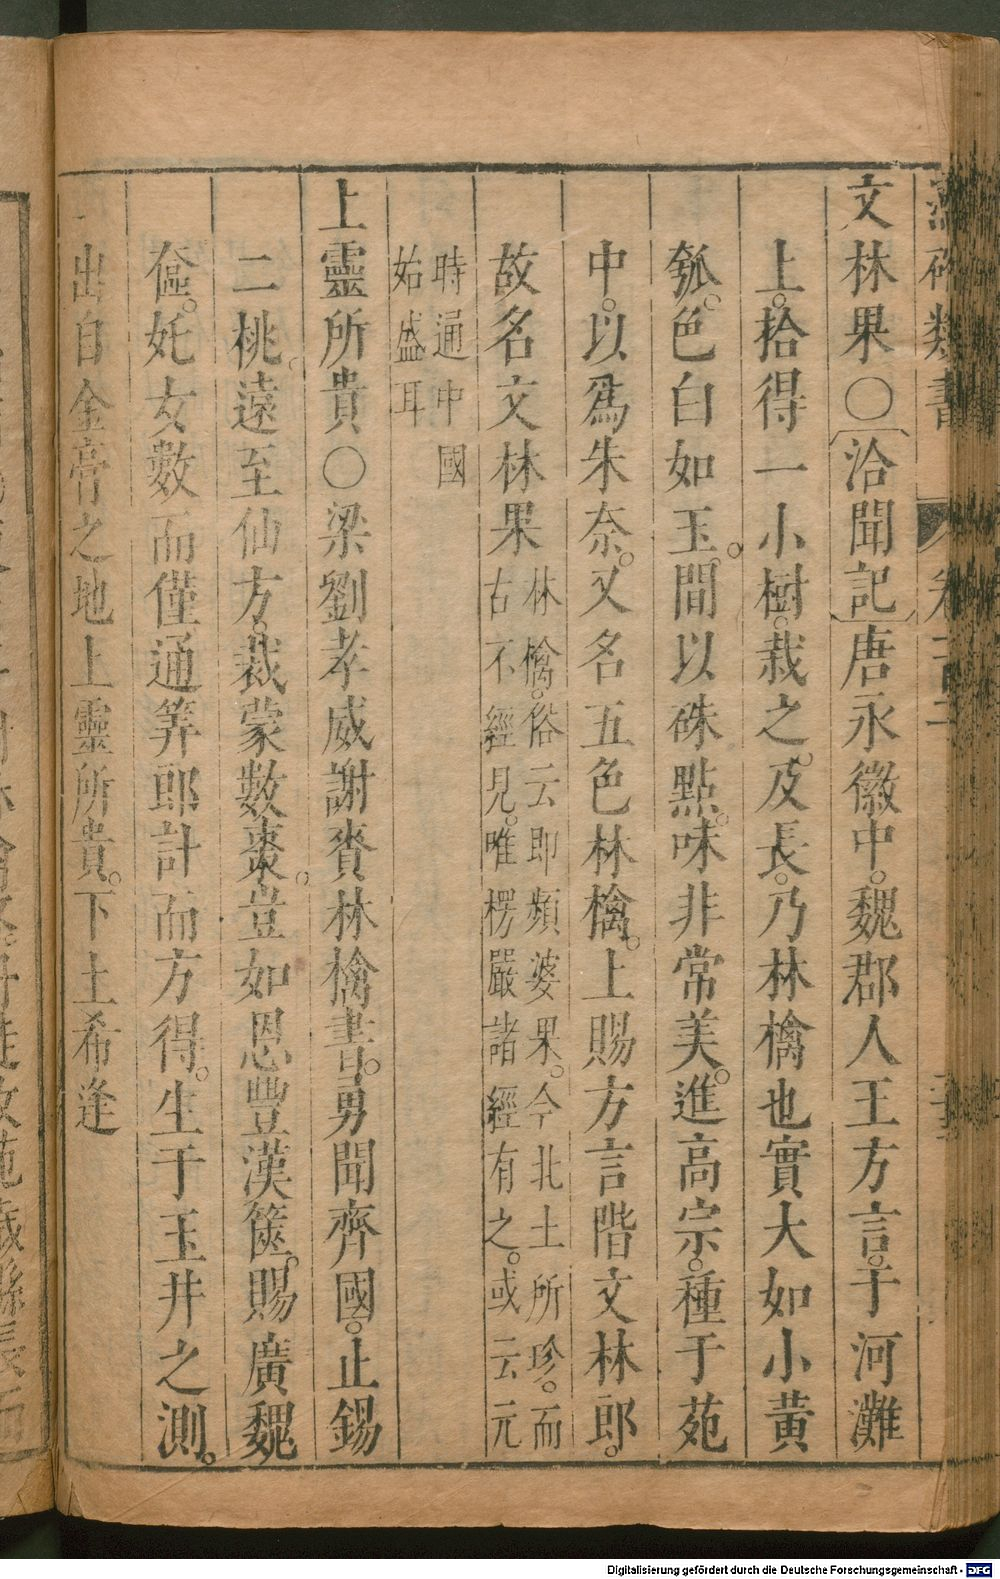 文林果○〔洽聞記〕唐永徽中。魏郡人王方言。于河灘
上。拾得一小樹。栽之。及長。乃林檎也實大如小黃
瓠。色白如玉。間以硃點。味非常美。進高宗。種于苑
中。以爲朱奈。又名五色林檎。上賜方言階文林郎。
故名文林果
林檎。俗云即頻婆果。今北土所珍。而
古不經見。唯楞嚴諸經有之。或云元
時通中國
始盛耳
上靈所貴○梁劉孝威謝賚林檎書。勇聞齊國。止錫
二桃。遠至仙方。裁蒙數棗。豈如恩豐漢篋。賜廣魏
奩。妊女數而僅通筭郎計而方得。生于玉井之測。
出自金膏之地上靈所貴。下土希逢
Digitalisierung gefördert durch die Deutsche Forschungsgemeinschaft - DFG